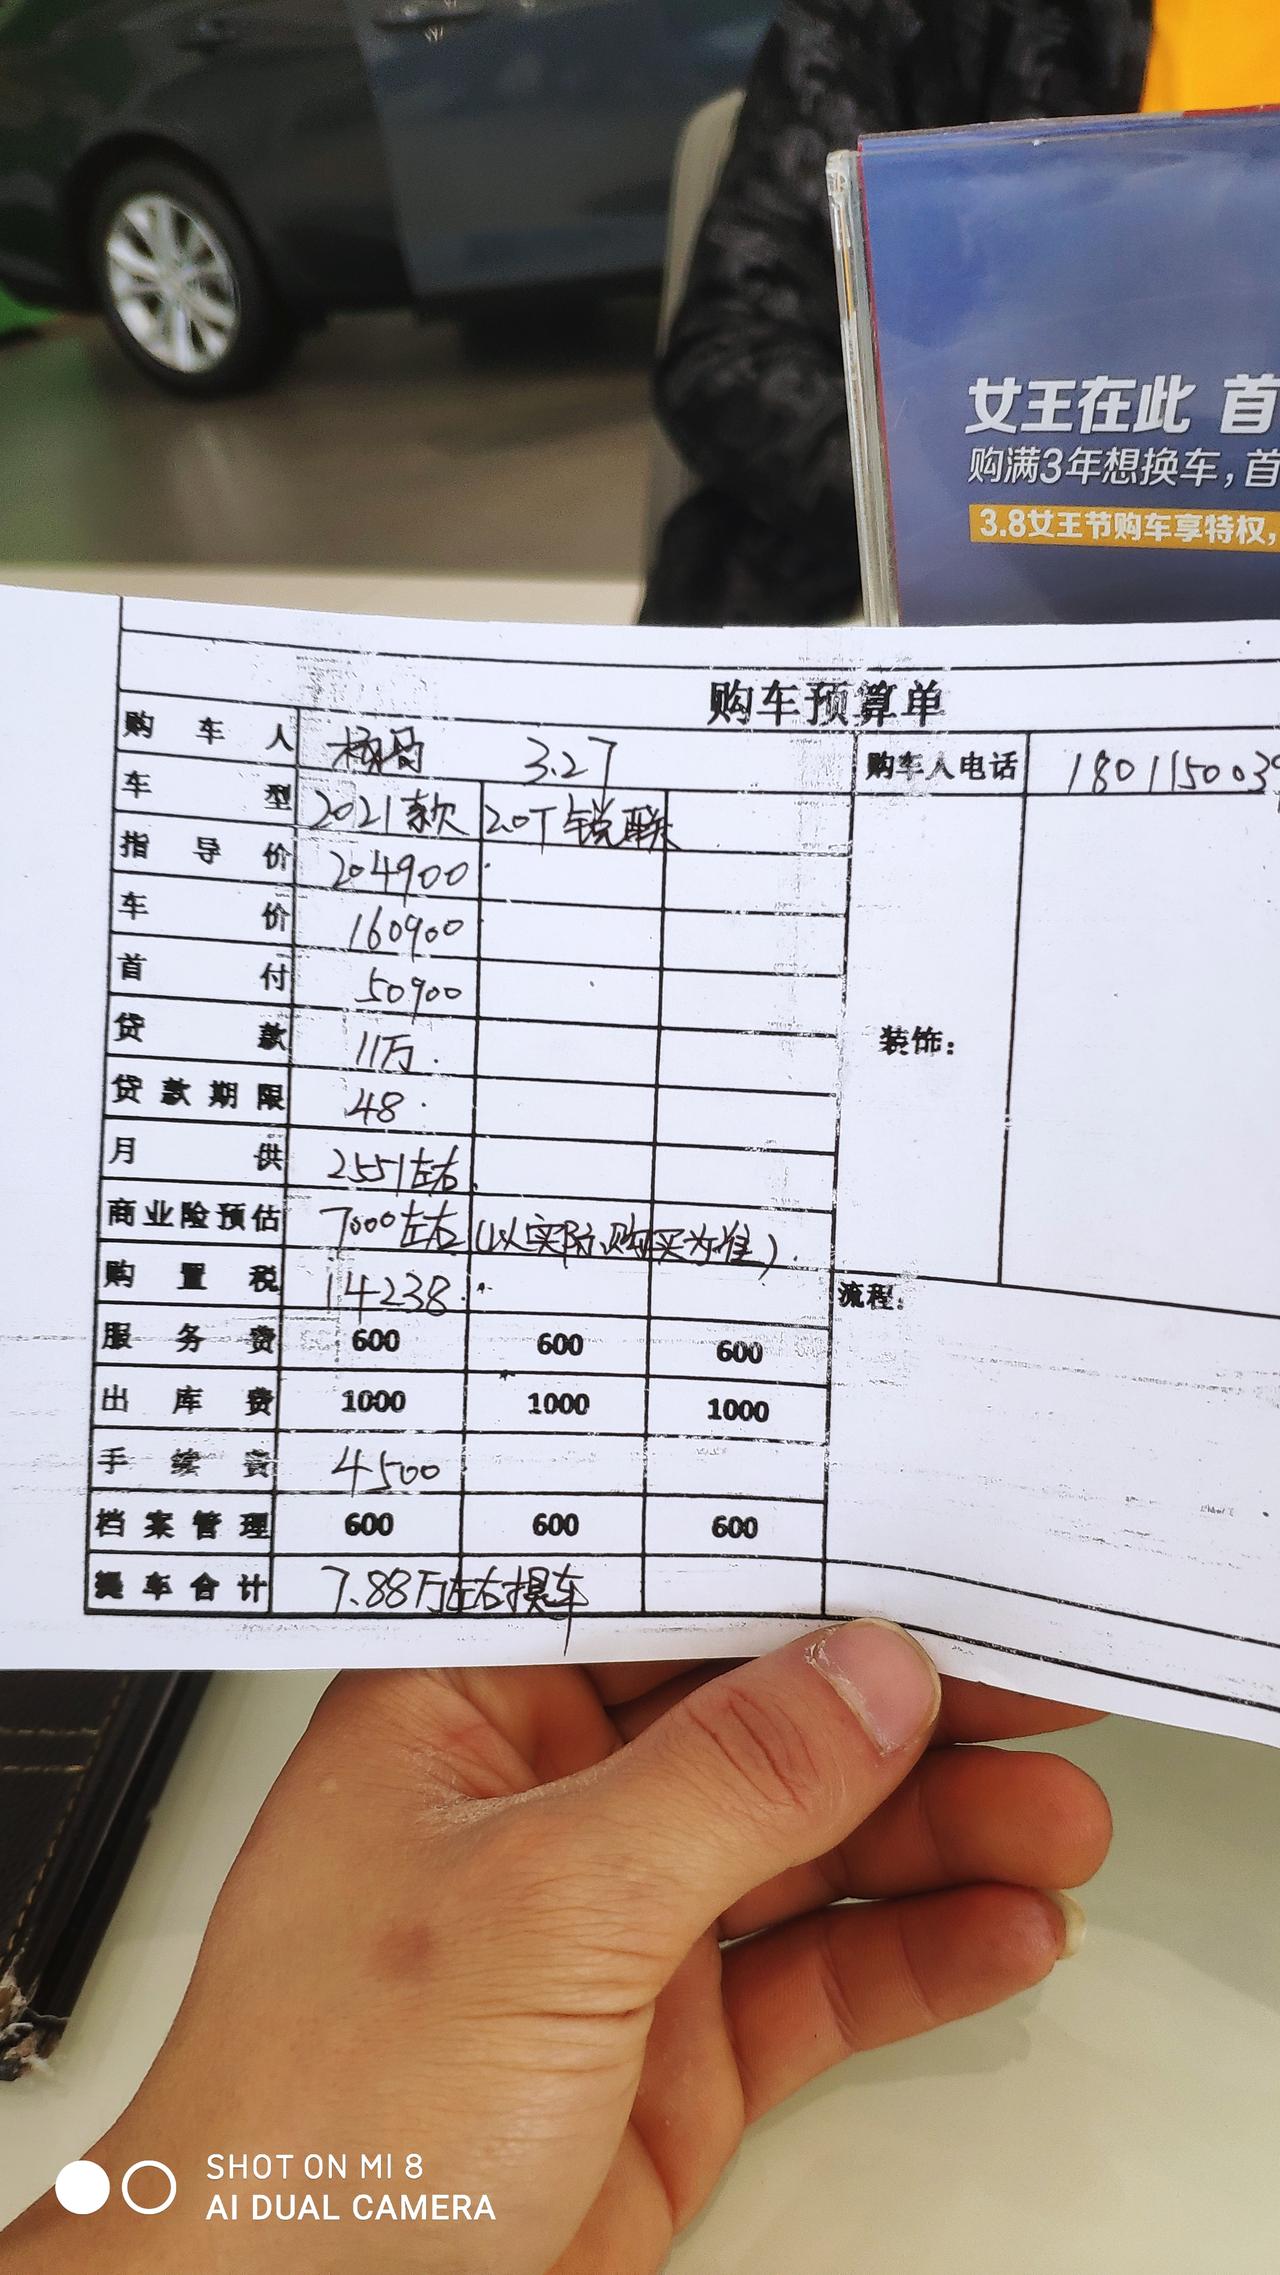 女王在此 首
购满3年想换车，首
3.8女王节购车享特权，
购车预算单
购车人 3.27 购车人电话 1801150039
车型 2021款 2.0T 锐联
指导价 204900
车价 160900
首付 50900
贷款 11万
装饰：
贷款期限 48
月供 2551左右
商业险预估 7000左右（以实际购买为准）
购置税 14238
流程：
服务费 600 600 600
出库费 1000 1000 1000
手续费 4500
档案管理 600 600 600
提车合计 7.88万左右提车
SHOT ON MI 8
AI DUAL CAMERA